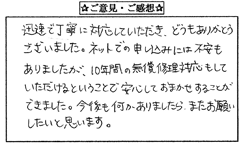 ☆ご意見・ご感想☆
迅速で丁寧に対応していただき、どうもありがとう
ございました。ネットでの申し込みには不安も
ありましたが、10年間の無償修理対応もして
いただけるということで安心しておまかせすることが
できました。今後も何かありましたら、またお願い
したいと思います。